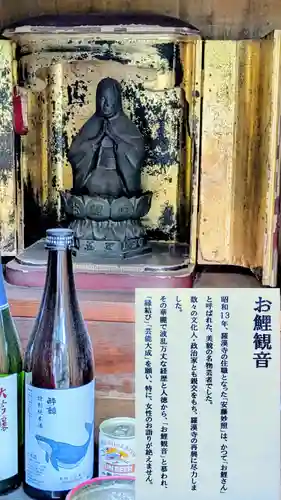 お鯉観音
昭和13年、羅漢寺の住職となった「安藤妙照」は、かつて「お鯉さん」
と呼ばれた、美貌の名物芸者でした。
数々の文化人・政治家とも親交をもち、羅漢寺の再興に尽力しま
した。
その華麗で波乱万丈な経歴と人徳から、「お鯉観音」と慕われ、
「縁結び」「芸能大成」を願い、特に、女性のお詣りが絶えません。
酔鯨
特別純米酒
KIRIN
BEER